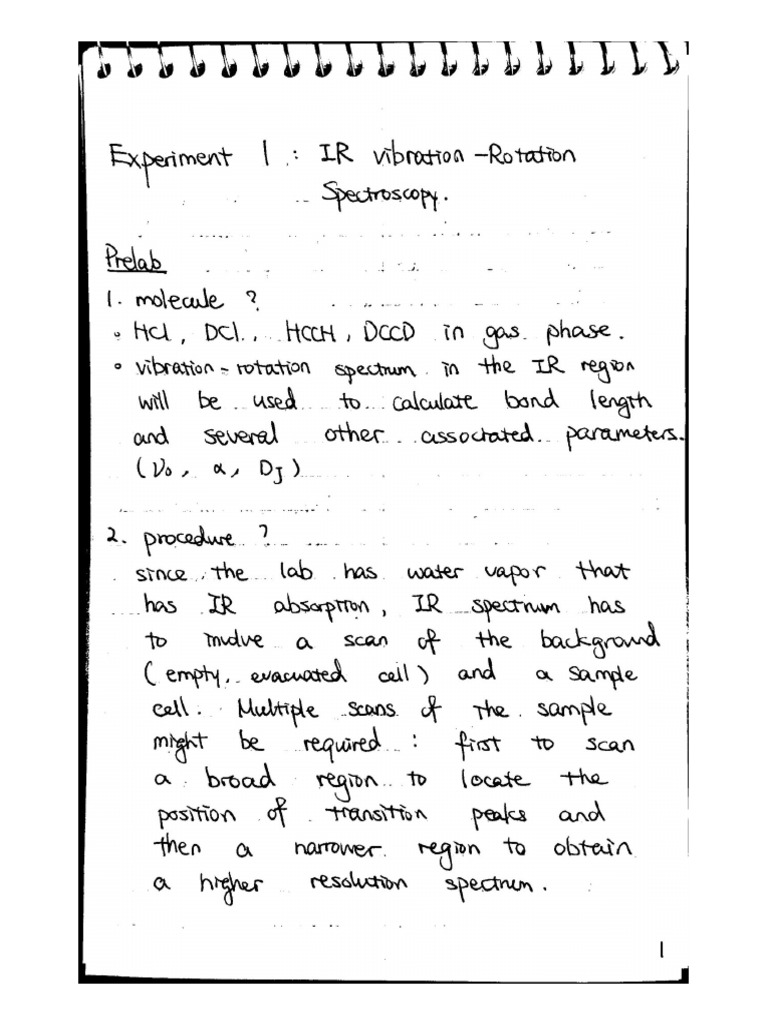 Experiment 1 : IR vibration-Rotation
Spectroscopy.
Prelab
1. molecule ?
◦ HCl, DCl, HCCH, DCCD in gas phase.
◦ vibration-rotation spectrum in the IR region
will be used to calculate bond length
and several other associated parameters.
(ν₀, α, DJ)
2. procedure ?
since the lab has water vapor that
has IR absorption, IR spectrum has
to involve a scan of the background
(empty, evacuated cell) and a sample
cell. Multiple scans of the sample
might be required : first to scan
a broad region to locate the
position of transition peaks and
then a narrower region to obtain
a higher resolution spectrum.
1